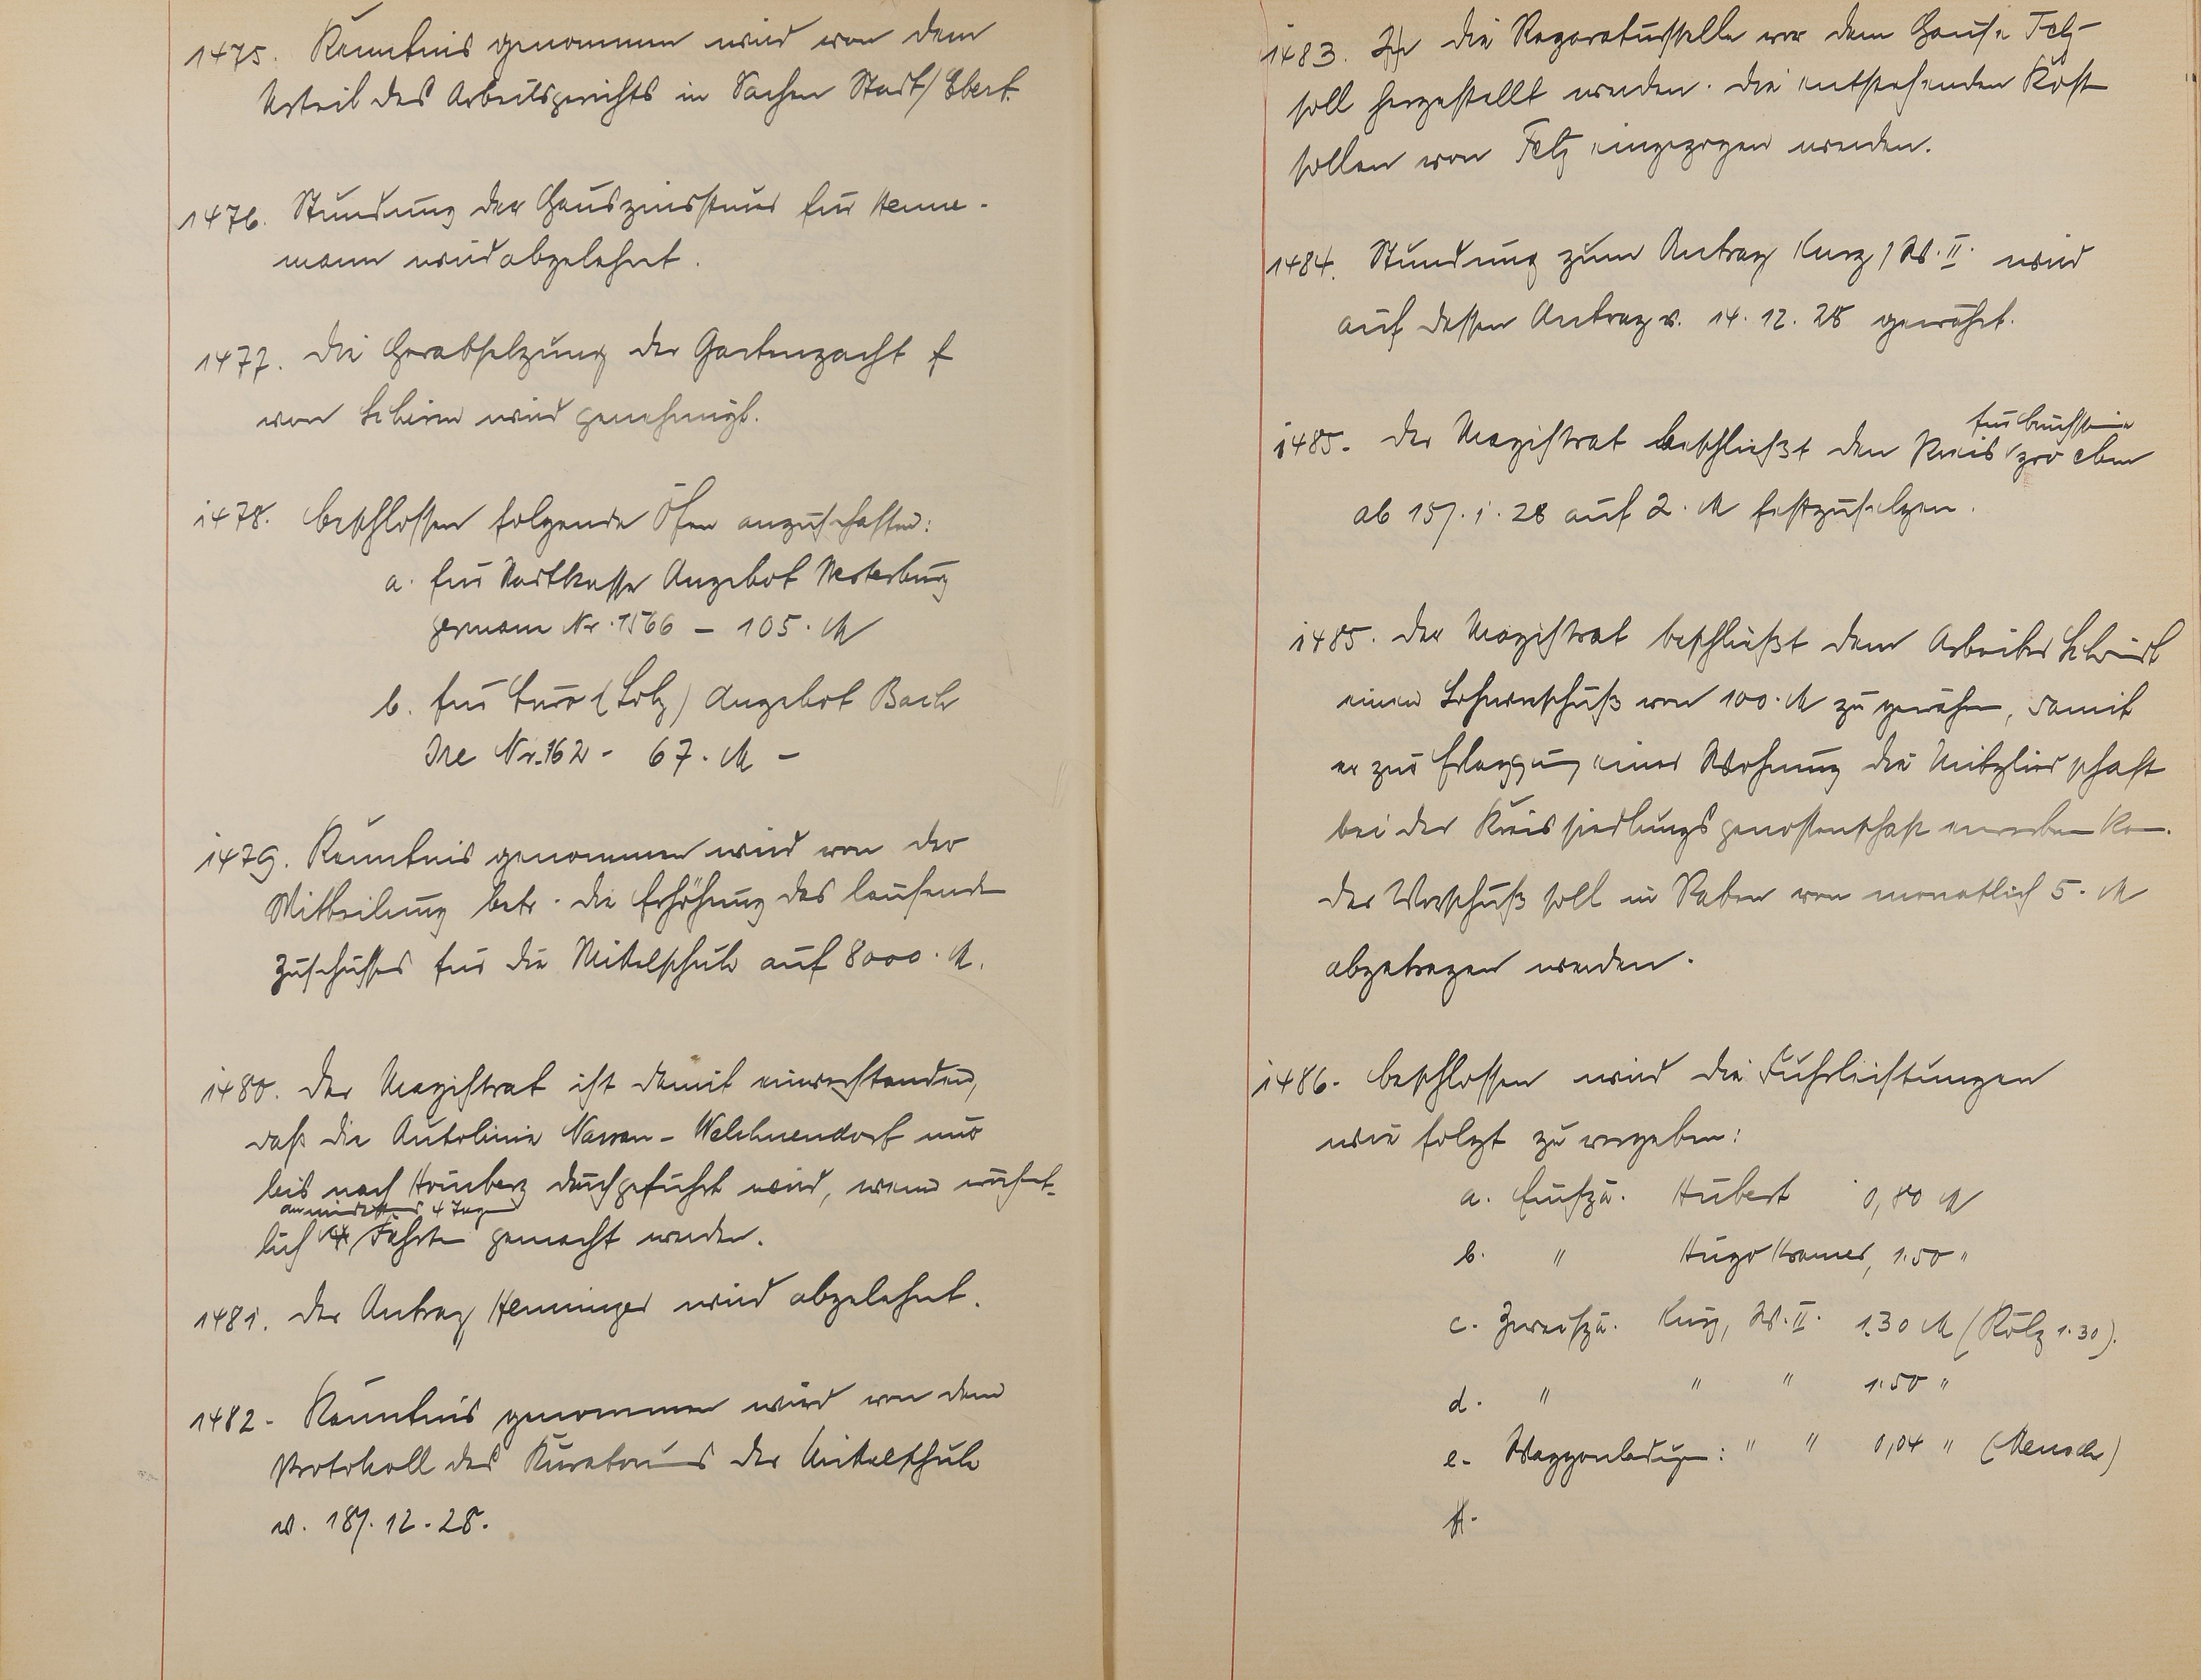 1475. Kenntnis genommen wird von dem
Urteil des Arbeitsgerichts in Sachen Stadt/Ebert.
1476. Stundung der Hauszinssteuer für Henne-
mann wird abgelehnt.
1477. Die Herabsetzung der Gartenpacht f
von Scheim wird genehmigt.
1478. Beschlossen folgende Öfen anzuschaffen:
a. für Stadtkasse Angebot Westerburg
German Nr. 1566 – 105. M
b. für Büro (Lotz) Angebot Bach
Ire Nr. 162 - 67. M –
1479. Kenntnis genommen wird von der
Mitteilung betr. die Erhöhung des laufenden
Zuschusses für die Mittelschule auf 8000. M.
1480. Der Magistrat ist damit einverstanden,
daß die Autolinie Nassau - Welschneudorf nur
bis nach Homberg durchgeführt wird, wenn wöchent-
an mindestens 4 Tagen
lich 4 Fahrten gemacht werden.
1481. Der Antrag Henninger wird abgelehnt.
1482- Kenntnis genommen wird von dem
Protokoll des Kuratoriums der Mittelschule
v. 18/. 12. 28.
1483. Die Reparaturstelle vor dem Hause Felz
soll hergestellt werden. Die entstehenden Kosten
sollen von Felz eingezogen werden.
1484. Stundung zum Antrag Kurz, W. II. wird
auf dessen Antrag v. 14. 12. 28 gewährt.
für Bruchsteine
1485. Der Magistrat beschließt den Preis pro cbm
ab 15/. 1. 28 auf 2. M festzusetzen.
1485. Der Magistrat beschließt dem Arbeiter Schmidt
einen Lohnvorschuß von 100. M zu gewähren, damit
er zur Erlangung einer Wohnung die Mitgliedschaft
bei der Kreissiedlungsgenossenschaft erwerben kann.
Der Vorschuß soll in Raten von monatlich 5. M
abgetragen werden.
1486. Beschlossen wird die Fuhrleistungen
wie folgt zu vergeben:
a. Einspä. Hubert 0,80 M
b. " Hugo Kramer, 1.50 "
c. Zweispä. Kurz, W. II. 1.30 M (Kölz 1.30).
d. " " " 1.50 "
e. Waggonladungen: " " 0,04 " (Mensch)